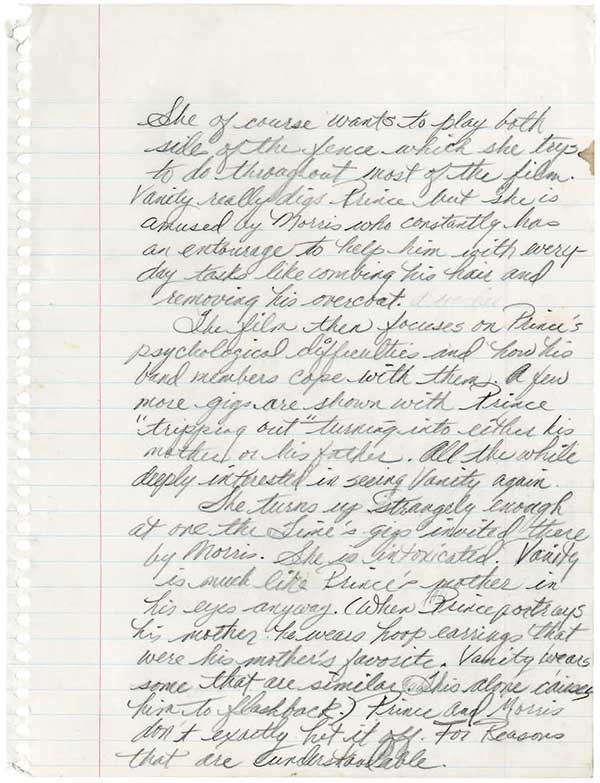 She of course wants to play both
side of the fence which she trys
to do throughout most of the film.
Vanity really digs Prince but she is
amused by Morris who constantly has
an entourage to help him with every-
day tasks like combing his hair and
removing his overcoat.
The film then focuses on Prince's
psychological difficulties and how his
band members cope with them. A few
more gigs are shown with Prince
"tripping out" turning into either his
mother or his father. All the while
deeply interested in seeing Vanity again.
She turns up strangely enough
at one the Time's gigs invited there
by Morris. She is intoxicated. Vanity
is much like Prince's mother in
his eyes anyway. (When Prince portrays
his mother he wears hoop earrings that
were his mother's favorite. Vanity wears
some that are similar. This alone causes
him to flashback.) Prince and Morris
don't exactly hit it off. For Reasons
that are understandable.